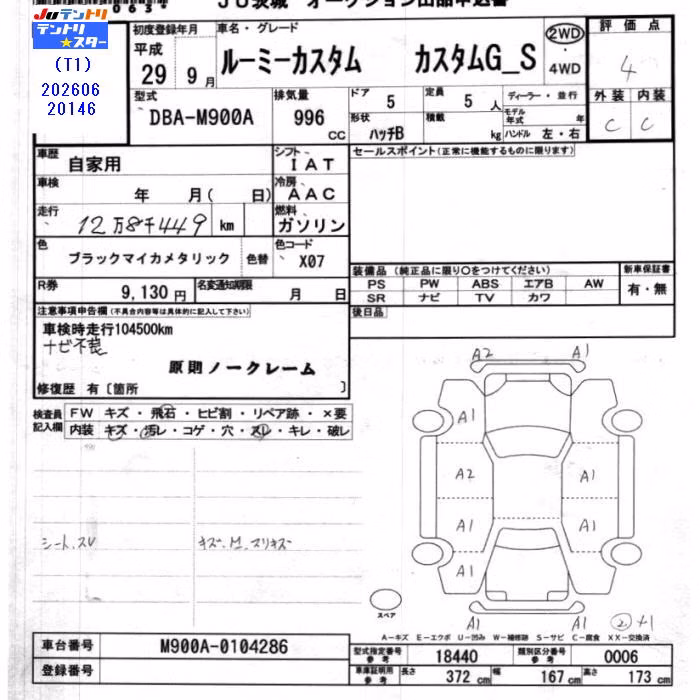 JU茨城 オークション出品申込書
JUテントリ
テントリ★スター
(T1)
202606
20146
初度登録年月 車名・グレード 2WD・4WD 評価点
平成 29年 9月 ルーミーカスタム カスタムG_S 4
型式 排気量 ドア 5 定員 5人 ディーラー・並行 外装 内装
DBA-M900A 996 CC 形状 ハッチB 積載 kg モデル年式 年 ハンドル 左・右 C C
車歴 自家用 シフト IAT セールスポイント(正常に機能するものに限ります)
車検 年 月( 日) 冷房 AAC
走行 12万8千449 km 燃料 ガソリン
色 ブラックマイカメタリック 色替 色コード X07
装備品 (純正品に限り○をつけてください) 新車保証書
PS PW ABS エアB AW 有・無
SR ナビ TV カワ
R券 9,130円 名変通知期限 月 日
後日品
注意事項申告欄(不具合内容等は具体的に記入して下さい)
車検時走行104500km
ナビ不良
原則ノークレーム
修復歴 有〔箇所 〕
検査員記入欄 FW キズ・飛石・ヒビ割・リペア跡・×要
内装 キズ・汚レ・コゲ・穴・スレ・キレ・破レ
シート.スレ キズ.凹.スリキズ
A2 A1
A1
A2 A1
A1 A1
A1
A1 A1
スペア
A-キズ E-エクボ U-凹み W-補修跡 S-サビ C-腐食 XX-交換済
車台番号 M900A-0104286 型式指定番号 参考 18440 類別区分番号 参考 0006
登録番号 車庫証明用 参考 長さ 372cm 幅 167cm 高さ 173cm